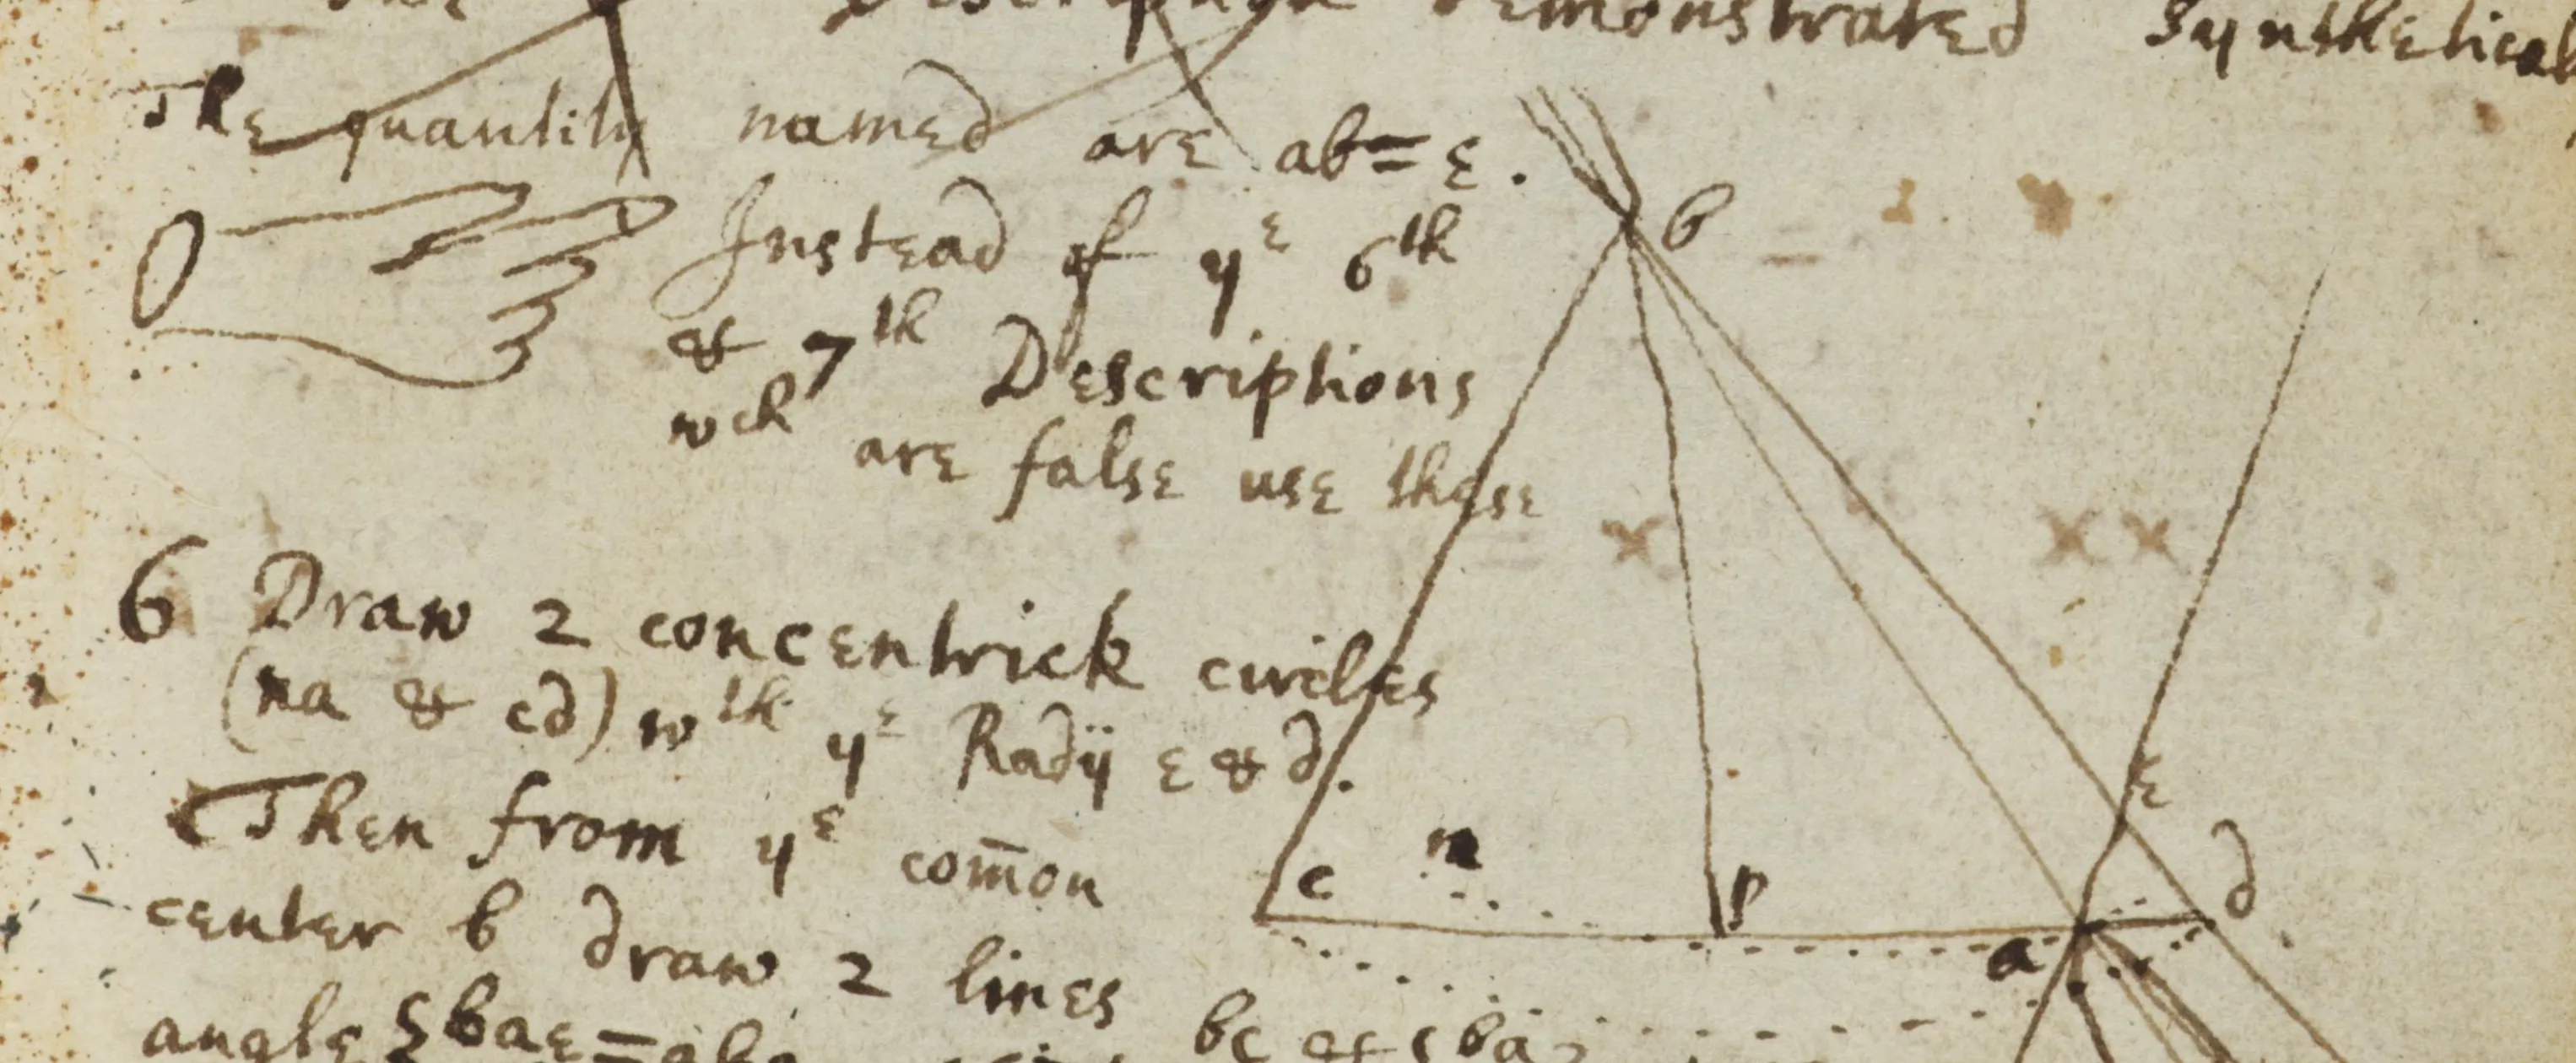 Descriptions demonstrated Synthetical
The quantity named are ab=e.
Instead of y^e 6^th
& 7^th Descriptions
w^ch are false use these
6 Draw 2 concentrick circles
(na & cd) w^th y^e Radij e & d.
Then from y^e com̄on
center b draw 2 lines
bc &
angle
b
e
d
c
n
p
a